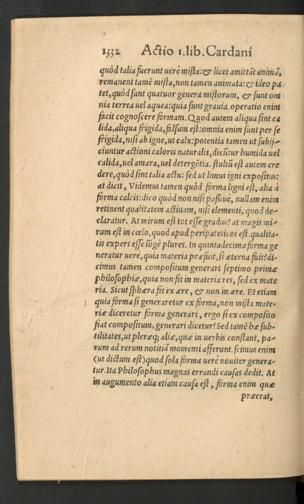 1332 Actio 1. lib. Cardani
quòd talia fuerunt uerè mista: & licet amittãt animã,
remanent tamẽ mista, non tamen animata: & ideo pa-
tet, quòd sunt quatuor genera mistorum, & sunt om
nia terrea uel aquea: quia sunt grauia. operatio enim
facit cognoscere formam. Quod autem aliqua sint ca
lida, aliqua frigida, falsum est: omnia enim sunt per se
frigida, nisi ab igne, ut calx: potentia tamen ut subij-
ciuntur actioni caloris naturalis, dicũtur humida uel
calida, uel amara, uel detergẽtia. stultũ est autem cre
dere, quòd sint talia actu: sed ut limus igni expositus:
at dicit, Videmus tamen quòd forma ligni est, alia à
forma calcis: dico quòd non nisi passiuè, nullam enim
retinent qualitatem actiuam, nisi elementi, quod de-
claratur. At mirum est tot esse gradus at magis mi-
rum est in cœlo, quod apud peripateticos est qualita-
tis expers esse lõgè plures. In quintadecima forma ge
neratur uerè, quia materia præfuit, si æterna fuit: di-
cimus tamen compositum generari septimo primæ
philosophiæ, quia non fit in materia res, sed ex mate
ria. Sicut sphæra fit ex ære, & non in ære. Et etiam
quia forma si generaretur ex forma, non mista mate-
riæ diceretur forma generari, ergo si ex composito
fiat compositum, generari dicetur? Sed tamẽ hæ sub-
tilitates, ut pleræq; aliæ, quæ in uerbis constant, pa-
rum ad rerum notitiã momenti afferunt. scimus enim
(ut dictum est) quòd sola forma uerè nouiter genera-
tur. Ita Philosophus magnas errandi causas dedit. At
in augumento alia etiam causa est, forma enim quæ
præerat,